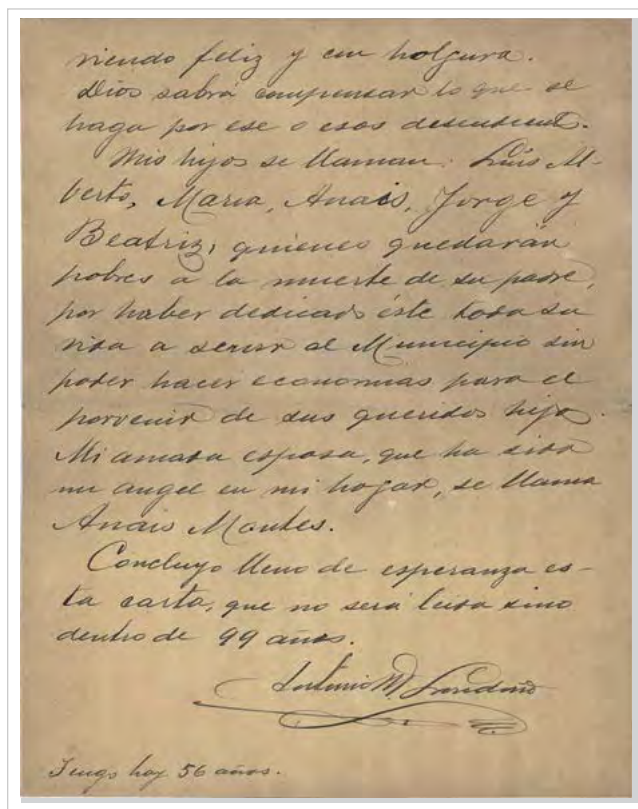 viendo feliz y con holgura.
Dios sabrá compensar lo que se
haga por ese o esos descendient.
Mis hijos se llaman: Luis Al-
berto, Maria, Anais, Jorge y
Beatriz, quienes quedarán
pobres a la muerte de su padre,
por haber dedicado éste toda su
vida a servir al Municipio sin
poder hacer economias para el
porvenir de sus queridos hijos.
Mi amada esposa, que ha sido
mi angel en mi hogar, se llama
Anais Montes.
Concluyo lleno de esperanza es-
ta carta, que no será leida sino
dentro de 99 años.
Antonio M.
Tengo hoy 56 años.